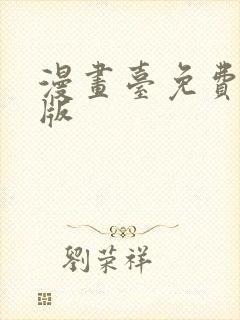 漫畫臺免費
版
劉榮祥